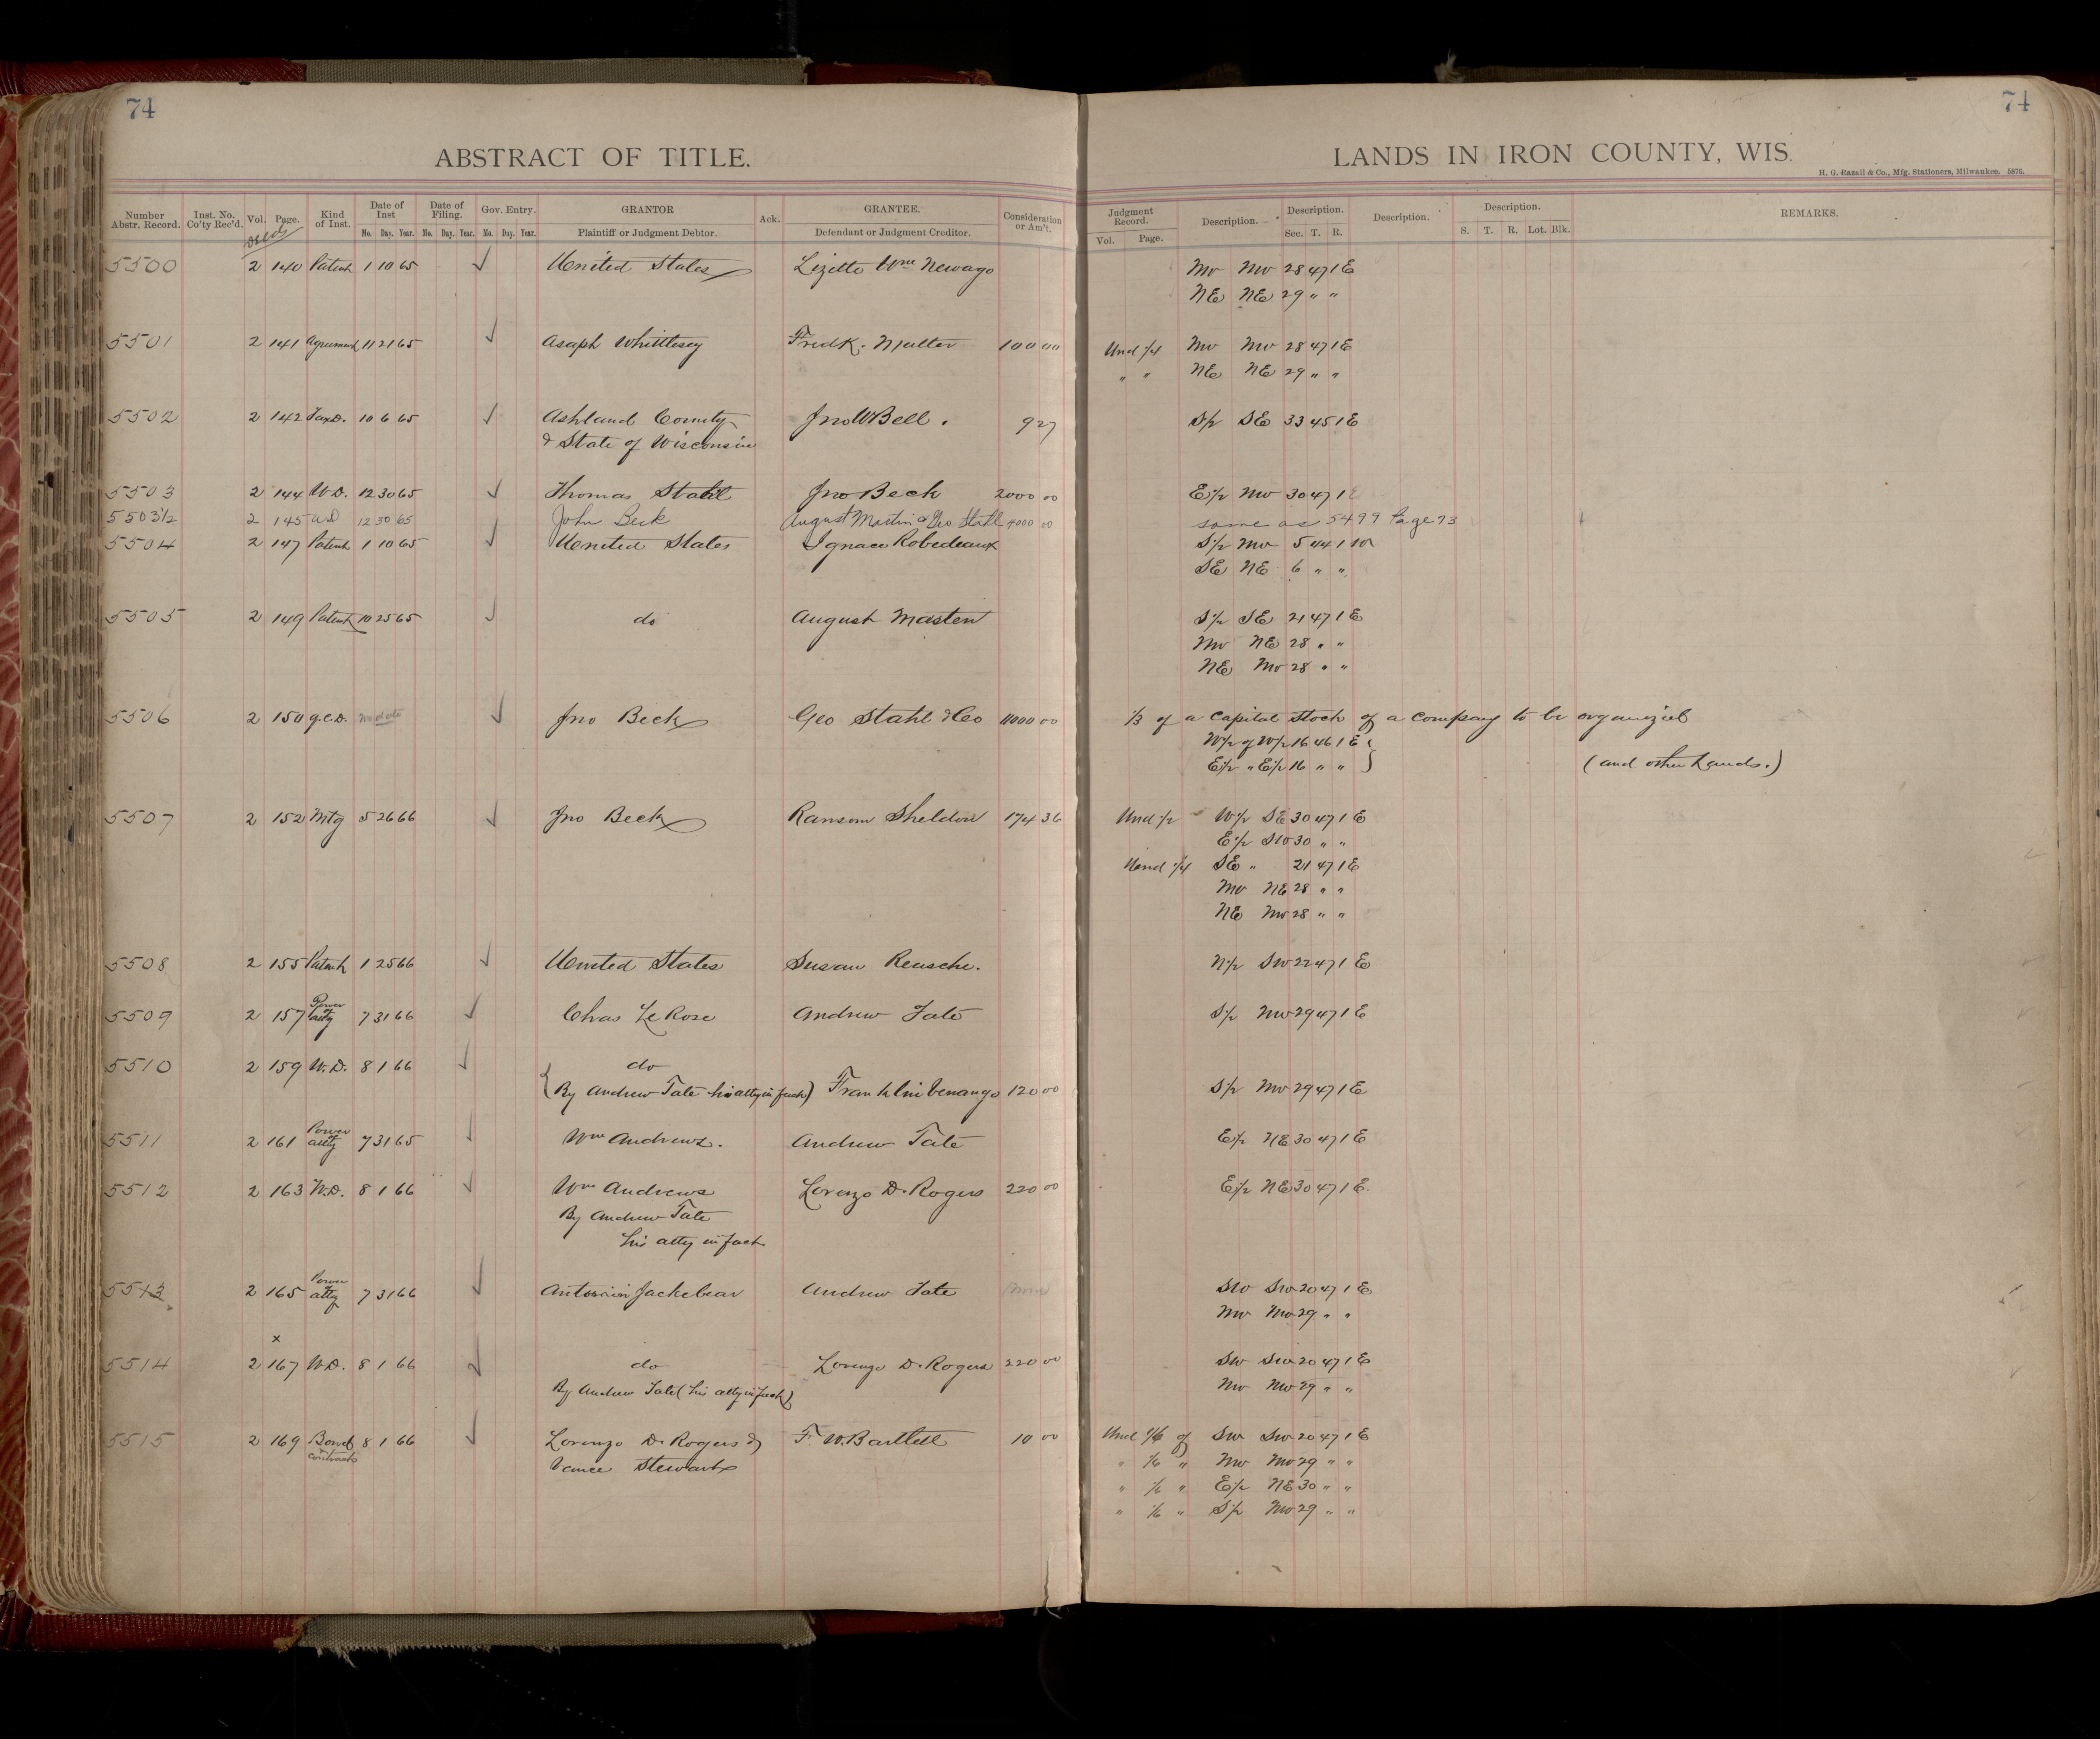 74
74
ABSTRACT OF TITLE.
LANDS IN IRON COUNTY, WIS.
H. G. Razall & Co., Mfg. Stationers, Milwaukee. 5876.
Number Abstr. Record. Inst. No. Co'ty Rec'd. Vol. Page. Kind of Inst. Date of Inst No. Day. Year. Date of Filing. No. Day. Year. Gov. Entry. No. Day. Year. GRANTOR Plaintiff or Judgment Debtor. Ack. GRANTEE. Defendant or Judgment Creditor. Consideration or Am't. Judgment Record. Vol. Page. Description. Description. Sec. T. R. Description. Description. S. T. R. Lot. Blk. REMARKS.
Deeds
5500 2 140 Patent 1 10 65 ✓ United States Lizette Wm Newago NW NW 28 47 1 E
NE NE 29 " "
5501 2 141 Agreement 11 21 65 ✓ Asaph Whittlesey Fredk. Mutter 100 00 Und 1/4 NW NW 28 47 1 E
" " NE NE 29 " "
5502 2 142 Tax D. 10 6 65 ✓ Ashland County Jno W Bell. 9 27 S 1/2 SE 33 45 1 E
& State of Wisconsin
5503 2 144 W.D. 12 30 65 ✓ Thomas Stahl Jno Beck 2000 00 E 1/2 NW 30 47 1 E
5503 1/2 2 145 W D 12 30 65 John Beck August Martin & Geo Stahl 4000 00 same as 5499 Page 73
5504 2 147 Patent 1 10 65 ✓ United States Ignace Robedeaux S 1/2 NW 5 44 1 W
SE NE 6 " "
5505 2 149 Patent 10 25 65 ✓ do August Masten S 1/2 SE 21 47 1 E
NW NE 28 " "
NE NW 28 " "
5506 2 150 q.c.D. No date ✓ Jno Beck Geo Stahl & Co 4000 00 1/3 of a Capital Stock of a Company to be organized
W 1/2 of W 1/2 16 46 1 E }
E 1/2 " E 1/2 16 " " } (and other Lands.)
5507 2 152 Mtg 5 26 66 ✓ Jno Beck Ransom Sheldon 174 36 Und 1/2 W 1/2 SE 30 47 1 E
E 1/2 SW 30 " "
Und 1/4 SE " 21 47 1 E
NW NE 28 " "
NE NW 28 " "
5508 2 155 Patent 1 25 66 ✓ United States Susan Reusche. N 1/2 SW 22 47 1 E
5509 2 157 Power atty 7 31 66 ✓ Chas Le Rose Andrew Tate S 1/2 NW 29 47 1 E
5510 2 159 W.D. 8 1 66 ✓ do
{By Andrew Tate his atty in fact) Franklin Venango 120 00 S 1/2 NW 29 47 1 E
5511 2 161 Power atty 7 31 65 ✓ Wm Andrews. Andrew Tate E 1/2 NE 30 47 1 E
5512 2 163 W.D. 8 1 66 ✓ Wm Andrews Lorenzo D. Rogers 220 00 E 1/2 NE 30 47 1 E.
By Andrew Tate
his atty in fact
5513 2 165 Power atty 7 31 66 ✓ Antonion Jackebear Andrew Tate SW SW 20 47 1 E
NW NW 29 " "
x
5514 2 167 W.D. 8 1 66 ✓ do Lorenzo D. Rogers 220 00 SW SW 20 47 1 E
By Andrew Tate (his atty in fact) NW NW 29 " "
5515 2 169 Bond contract 8 1 66 ✓ Lorenzo D. Rogers & F. W. Bartlett 10 00 Und 1/6 of SW SW 20 47 1 E
Vance Stewart " 1/6 " NW NW 29 " "
" 1/6 " E 1/2 NE 30 " "
" 1/6 " S 1/2 NW 29 " "